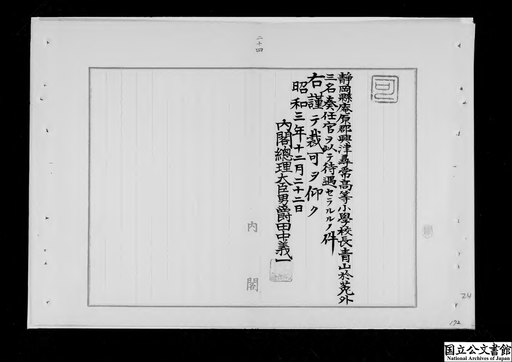 二十四
可
靜岡縣庵原郡興津尋常高等小學校長青山於菟外
三名奏任官ヲ以テ待遇セラルルノ件
右謹テ裁可ヲ仰ク
昭和三年十二月二十二日
內閣總理大臣男爵田中義一
內閣
24
172
国立公文書館
National Archives of Japan